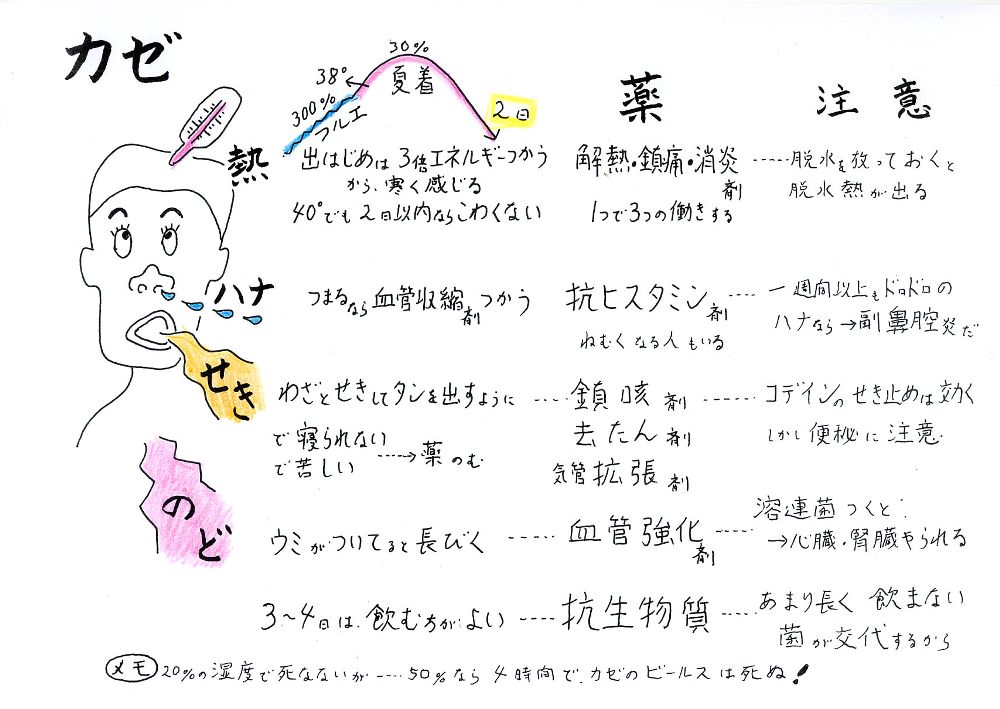 カゼ
30%
38°
夏着
300%
フルエ
2日
薬
注意
熱
出はじめは3倍エネルギーつかう
から、寒く感じる
40°でも2日以内ならこわくない
解熱・鎮痛・消炎剤
1つで3つの働きする
脱水を放っておくと
脱水熱が出る
ハナ
つまるなら血管収縮剤つかう
抗ヒスタミン剤
ねむくなる人もいる
一週間以上もドロドロの
ハナなら→副鼻腔炎だ
せき
わざとせきしてタンを出すように
で寝られない
で苦しい
薬のむ
鎮咳剤
去たん剤
気管拡張剤
コデインのせき止めは効く
しかし便秘に注意
のど
ウミがついてると長びく
血管強化剤
溶連菌つくと:
→心臓・腎臓やられる
3~4日は、飲む方がよい
抗生物質
あまり長く飲まない
菌が交代するから
メモ 20%の湿度で死なないが 50%なら4時間で、カゼのビールスは死ぬ!